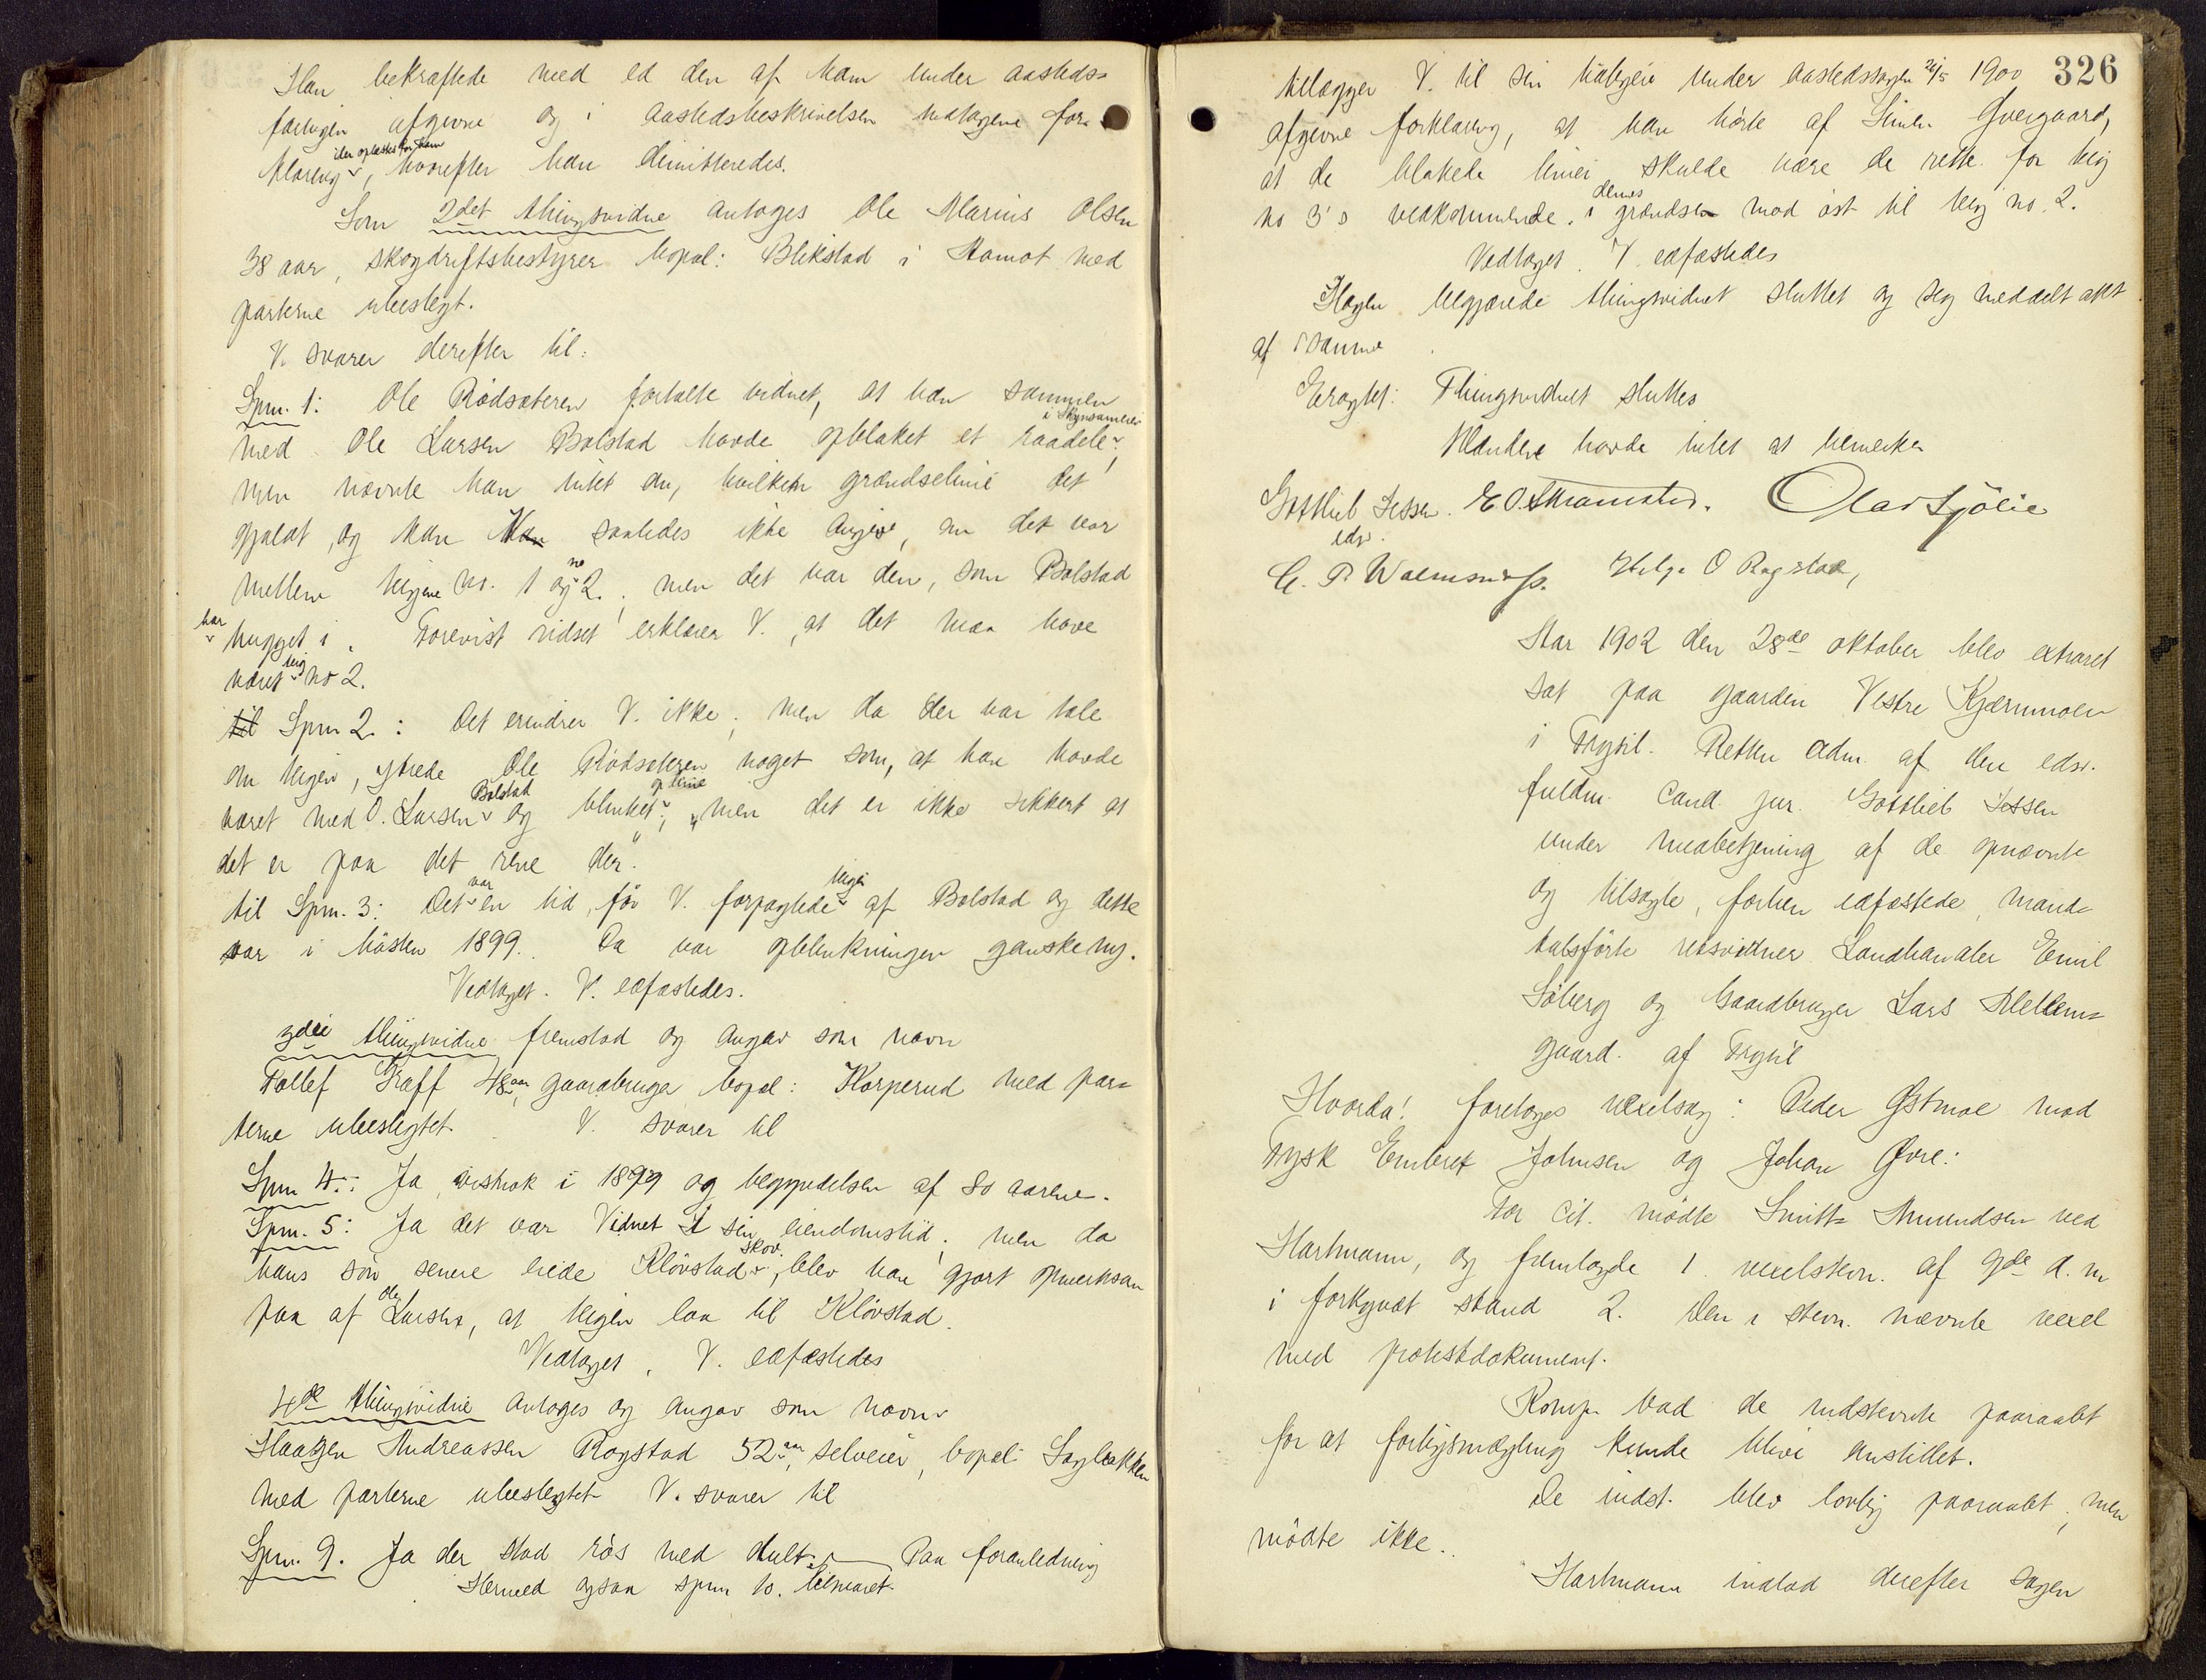 Han bekræftede med ed den af ham under aasteds-
forretngen afgivne og i aastedsbeskrivelsen indtagene for-
klaring, der oplæstes for ham, hvorefter han dimitteredes.
Som 2det thingsvidne antoges Ole Marius Olsen
38 aar, skogdriftsbestyrer bopæl: Blikstad i Stamot med
parterne ubeslegt.
V. svarer derefter til:
Spm. 1: Ole Rödsæteren fortalte vidnet, at han sammen
med Ole Larsen Bolstad havde opblaket et raadele i Skynsameiet,
men nævnte han intet om, hvilken grændselinie det
gjaldt, og kan saaledes ikke angive, om det var
mellem teigene No. 1 og no 2.; men det var den, som Bolstad
har hugget i. Forevist ridset erklærer V., at det maa have
været teig no 2.
til Spm 2.: Det erindrer V. ikke; men da der var tale
om teigen, ytrede Ole Rödsæteren noget som, at han havde
været med O. Larsen Bolstad og blinket op linie; "men det er ikke sikkert at
det er paa det rene der".
til Spm. 3: Det var en tid, för V. forpagtede teigen af Bolstad og dette
var i hösten 1899. Da var opblinkningen ganske ny.
Vedtaget. V. edfæstedes.
3die thingsvidne fremstod og angav som navn
Tollef Graff 48 aar, gaardbruger bopæl: Korperud med par-
terne ubeslegtet. V. svarer til
Spm 4.: Ja, i 1899 og begyndelsen af 80 aarene.
Spm. 5: Ja det var Vidnet i sin eiendomstid; men da
hans sön senere eiede Klövstad skov, blev han gjort opmerksom
paa af Ole Larsen, at teigen laa til Klövstad.
Vedtaget. V. edfæstedes
4de thingsvidne antoges og angav som navn
Haagen Andreassen Rogstad 52 aar, selveier, bopæl: Sagbakken
med parterne ubeslegtet V. svarer til
Spm. 9. Ja der stod rös med hult. Paa foranledning
Hermed ogsaa spm 10. besvaret.
326
tillægger V. til sin tidligere under aastedssagen 26/5 1900
afgivne forklaring, at han hörte af Simen Gvergaard,
at de blakede linier skulde være de rette for teig
no 3's vedkommende. i dennes grændse mod öst til teig no. 2.
Vedtaget. V. edfæstedes
Hagen begjærede thingsvidnet sluttet og sig meddelt akt
af samme
Eragtet: Thingsvidnet sluttes
Mændene havde intet at bemerke
Gottlieb Jessen. E O. Stramstad. Olav Sjölie
edsv.
Helge O Rogstad,
Aar 1902 den 28de oktober blev extraret
sat paa gaarden Vestre Kjernmoen
i Trysil. Retten adm. af den edsv.
fuldm. Cand. jur. Gottlieb Jessen
under medbetjening af de opnævnte
og tilsagte, forhen edfæstede, mand-
talsförte retsvidner Landhandler Emil
Söberg og Gaardbruger Lars Mellem-
gaard. af Trysil
Hvorda! foretoges vexelsag: Peder Østmoe mod
Tysk Embret Johnsen og Johan Øvre:
For cit. mödte Smitt- Amundsen ved
Hartmann, og fremlagde 1. vexelstevn. af 9de d. m
i forkyndt stand 2. den i stevn. nævnte vexel
med protestdokument.
Komp. bad de indstevnte paaraabt
for at forligsmægling kunde blive anstillet.
De indst. blev lovlig paaraabt; men
mödte ikke.
Hartmann indlod derefter sagen